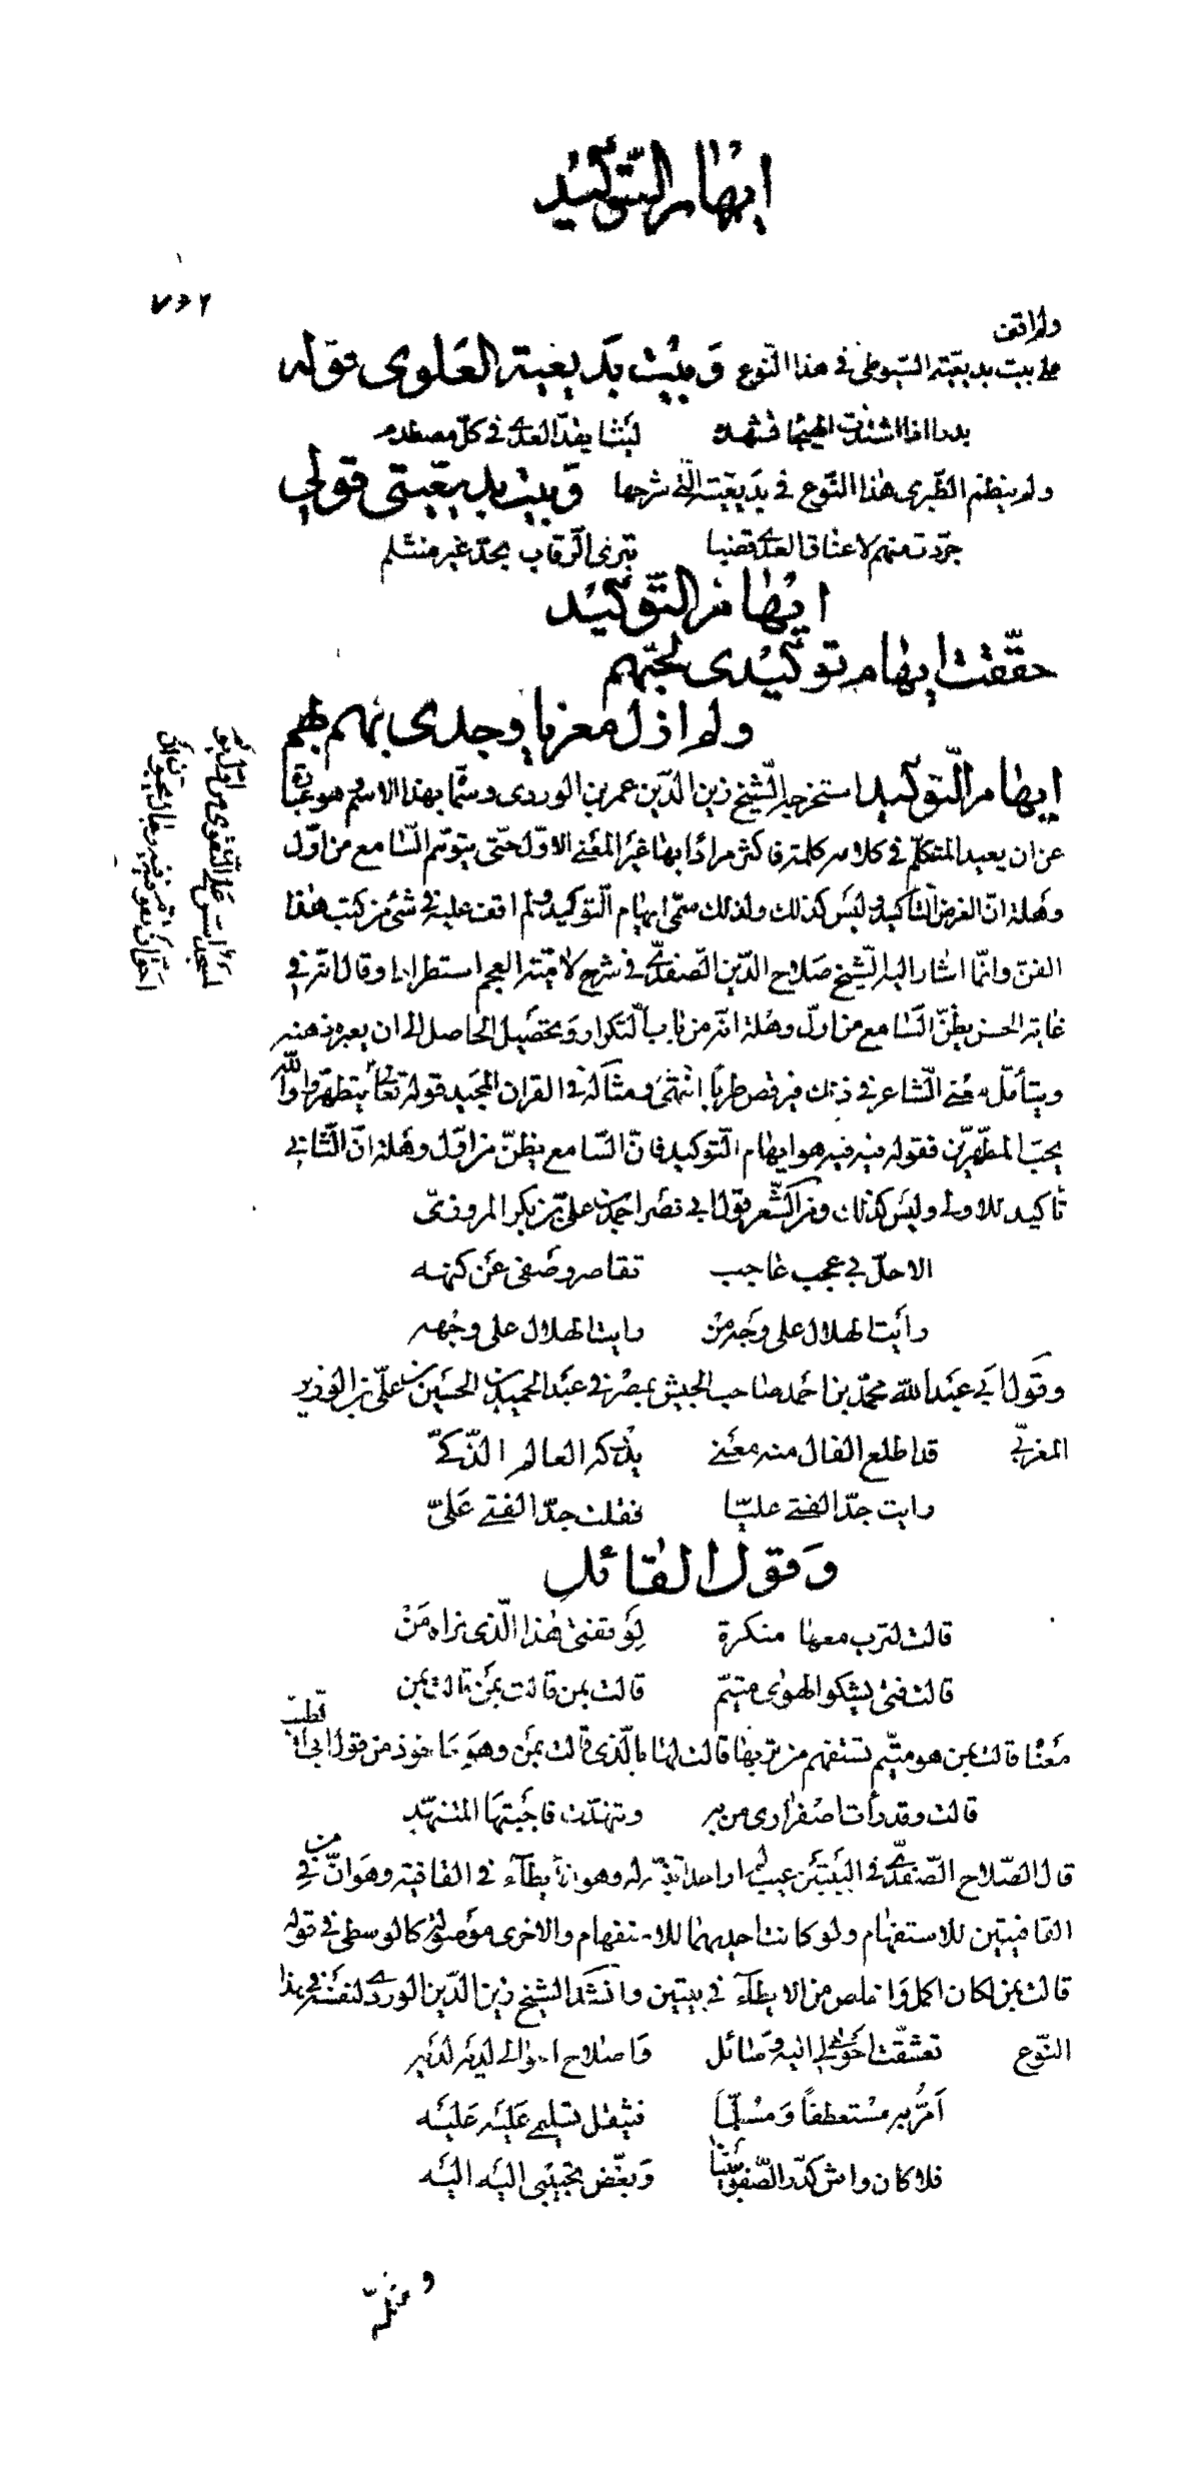 إيهام التوكيد
٧٥٦
ولم اقف
على بيت بديعيّة السّيوطي في هذا النّوع وبيت بديعية العلوي قوله
بدرا اذا اشتدّت الهيجا فشهدته ليثا يقدّ العدى في كلّ مصطدم
ولم ينظم الطّبري هذا النّوع في بديعيّته الّتي شرحها وبيت بديعيّتي قولي
جرّدت منهم لاعناق العدى قضبا تبري الرّقاب بحدّ غير منثلم
إيهام التّوكيد
حقّقت إيهام توكيدي لحبّهم
ولم ازل مغريا وجدي بهم بهم
إيهام التّوكيد استخرجه الشّيخ زين الدّين عمر بن الوردي وسمّاه بهذا الاسم وهو عبارة
عن ان يعيد المتكلّم في كلامه كلمة فاكثر مرادا بها غير المعنى الاوّل حتّى يتوهّم السّامع من اوّل
وهلة انّ الغرض التّاكيد وليس كذلك ولذلك سمّي ايهام التّوكيد ولم اقف عليه في شيء من كتب هذا
الفنّ وانّما اشار اليه الشّيخ صلاح الدّين الصّفدي في شرح لاميّة العجم استطرادا وقال انّه في
غاية الحسن يظنّ السّامع من اوّل وهلة انّه من باب التّكرار وتحصيل الحاصل الى ان يعبره ذهنه
ويتأمّل معنى الشّاعر في ذلك فيرقص طربا انتهى ومثاله في القران المجيد قوله تعالى يتطهّروا والله
يحبّ المطّهّرين فقوله فيه فيه هو ايهام التّوكيد فانّ السّامع يظنّ من اوّل وهلة انّ الثّاني
تأكيد للاول وليس كذلك ومن الشّعر قول ابي نصر احمد بن علي بن بكر المروزيّ
الا حلّ بي عجب عاجب تقاصر وصفي عن كنهه
رأيت الهلال على وجه من رايت الهلال على وجهه
وقول ابي عبد الله محمّد بن احمد صاحب الجيش بمصر في عبد الحميد بن الحسين بن عليّ بن الوزير
المغربيّ قد اطلع الفال منه معنى يدركه العالم الذّكيّ
رايت جدّ الفتى عليّا فقلت جدّ الفتى عليّ
وقول القائل
قالت لترب معها منكرة لوقفتي هذا الّذي نراه من
قالت فتى يشكو الهوى متيّم قالت بمن قالت بمن قالت بمن
معناه قالت بمن هو متيّم تستفهم من تربها قالت لها بالّذي قالت بمن وهو ماخوذ من قول ابي الطيّب
قالت وقد رأت اصفراري من به وتنهّدت فاجبتها المتنهّد
قال الصّلاح الصّفديّ في البيتين عيب لم ار احدا تنبّه له وهو الايطآء في القافية وهو انّ من في
القافيتين للاستفهام ولو كانت احديهما للاستفهام والاخرى موصولة كالوسطى في قوله
قالت بمن لكان اكمل واخلص من الايطآء في بيتين وانشد الشيخ زين الدّين الوردي لنفسه في هذا
النّوع تعشّقت احوى لي اليه وسائل واصلاح احوالي لديه لديه
أمرّ به مستعطفاً ومسلّما فيثقل تسليمي عليه عليه
فلا كان واش كدّر الصّفو بيننا وبغّض تحبيبي اليه اليه
لمسجد اسّس على التّقوى من اوّل يوم
احقّ ان تقوم فيه فيه رجال يحبّون ان
ومنه